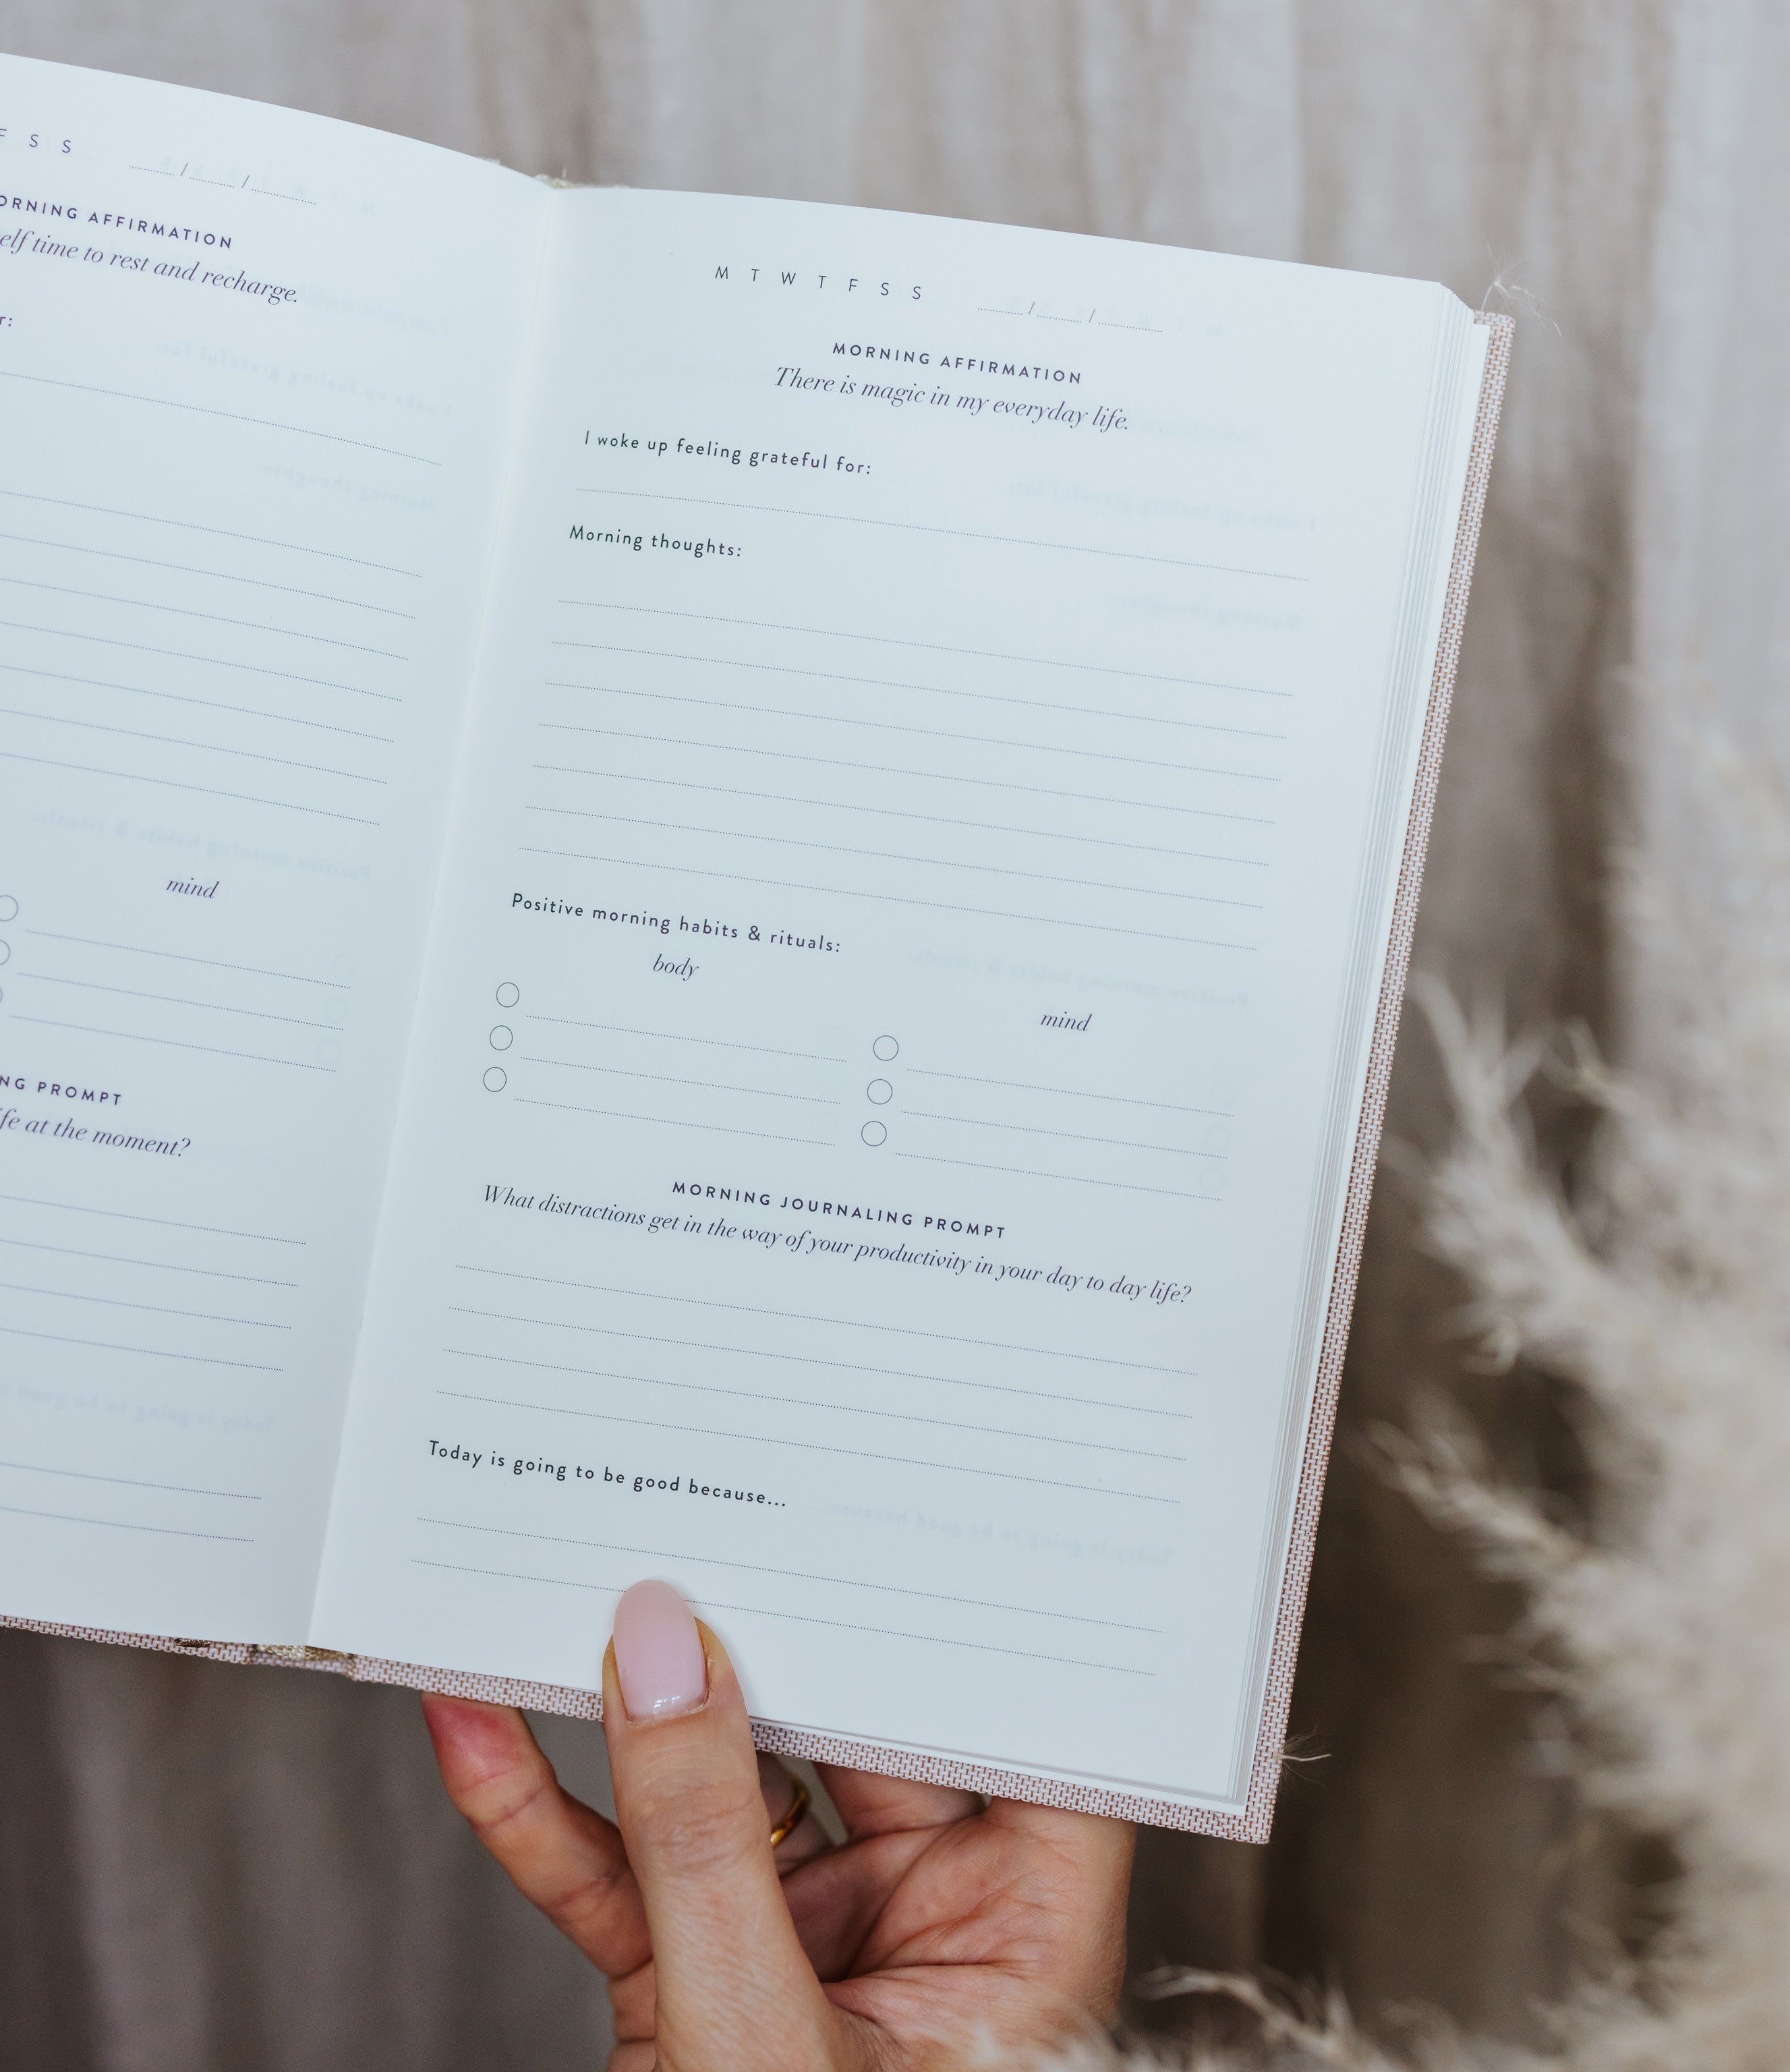 F S S / /
ORNING AFFIRMATION
elf time to rest and recharge.
r:
mind
NG PROMPT
ife at the moment?
M T W T F S S / /
MORNING AFFIRMATION
There is magic in my everyday life.
I woke up feeling grateful for:
Morning thoughts:
Positive morning habits & rituals:
body
mind
MORNING JOURNALING PROMPT
What distractions get in the way of your productivity in your day to day life?
Today is going to be good because...